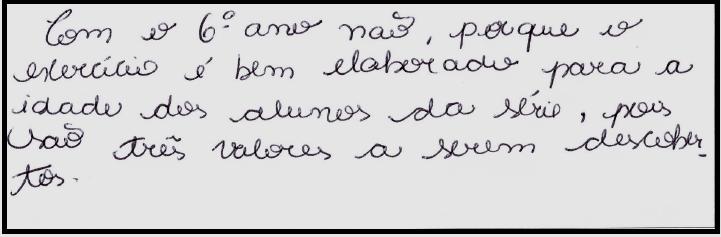 Com o 6º ano não, porque o
exercício é bem elaborado para a
idade dos alunos da série, pois
são três valores a serem descober-
tos.